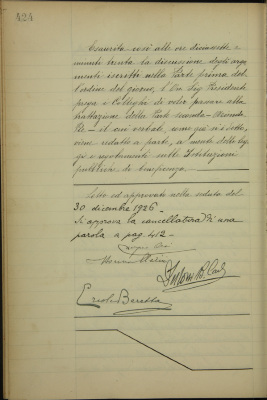 424
Esaurita così alle ore diciassette e
minuti trenta la discussione degli argo-
menti iscritti nella Parte prima del-
l'ordine del giorno, l'On. Sig. Presidente
prega i Colleghi di voler passare alla
trattazione della Parte seconda -
- il cui verbale, come già si è detto,
viene redatto a parte, a mente delle leg-
gi e regolamenti sulle Istituzioni
pubbliche di beneficenza.
Letto ed approvato nella seduta del
30 dicembre 1926 -
Si approva la cancellatura di una
parola a pag. 412 -
Ercole Baratta